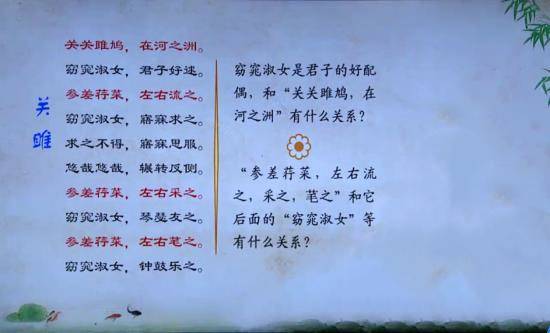 关雎
关关雎鸠，在河之洲。
窈窕淑女，君子好逑。
参差荇菜，左右流之。
窈窕淑女，寤寐求之。
求之不得，寤寐思服。
悠哉悠哉，辗转反侧。
参差荇菜，左右采之。
窈窕淑女，琴瑟友之。
参差荇菜，左右芼之。
窈窕淑女，钟鼓乐之。
窈窕淑女是君子的好配
偶，和“关关雎鸠，在
河之洲”有什么关系？
“参差荇菜，左右流
之，采之，笔之”和它
后面的“窈窕淑女”等
有什么关系？